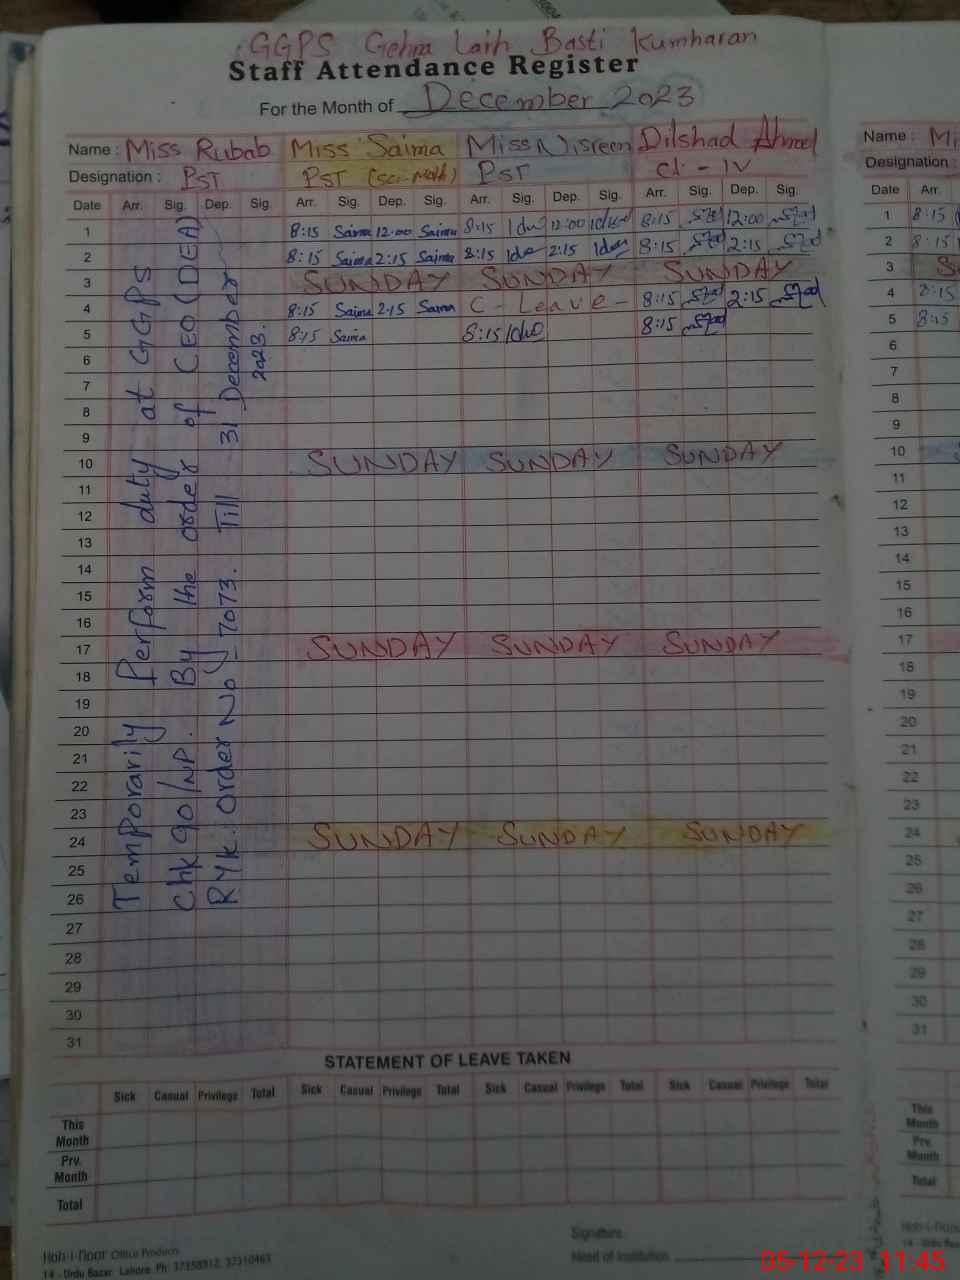 GGPS Gehna Laih Basti Kumharan
Staff Attendance Register
For the Month of December 2023
Name : Miss Rubab Miss Saima Miss Nisreen Dilshad Ahmad
Designation : PST PST (Sci-Math) PST Cl - IV
Date Arr. Sig. Dep. Sig. Arr. Sig. Dep. Sig. Arr. Sig. Dep. Sig. Arr. Sig. Dep. Sig.
1 8:15 Saima 12:00 Saima 8:15 12:00 8:15 12:00
2 8:15 Saima 2:15 Saima 8:15 2:15 8:15 2:15
3 SUNDAY SUNDAY SUNDAY
4 8:15 Saima 2:15 Saima C - Leave - 8:15 2:15
5 8:15 Saima 8:15 8:15
6
7
8
9
10 SUNDAY SUNDAY SUNDAY
11
12
13
14
15
16
17 SUNDAY SUNDAY SUNDAY
18
19
20
21
22
23
24 SUNDAY SUNDAY SUNDAY
25
26
27
28
29
30
31
Temporarily Perform duty at GGPS
Chk 90/NP. By the order of CEO (DEA)
RYK. Order No - 7073. Till 31 December
2023.
STATEMENT OF LEAVE TAKEN
Sick Casual Privilege Total Sick Casual Privilege Total Sick Casual Privilege Total Sick Casual Privilege Total
This
Month
Prv.
Month
Total
Signature
Head of Institution
Hoh-i-Noor Office Products
14 - Urdu Bazar, Lahore. Ph: 37358312, 37310463
Name : Mi
Designation :
Date Arr.
1 8:15
2 8:15
3 S
4 8:15
5 8:15
6
7
8
9
10
11
12
13
14
15
16
17
18
19
20
21
22
23
24
25
26
27
28
29
30
31
This
Month
Prv.
Month
Total
05-12-23 11:45